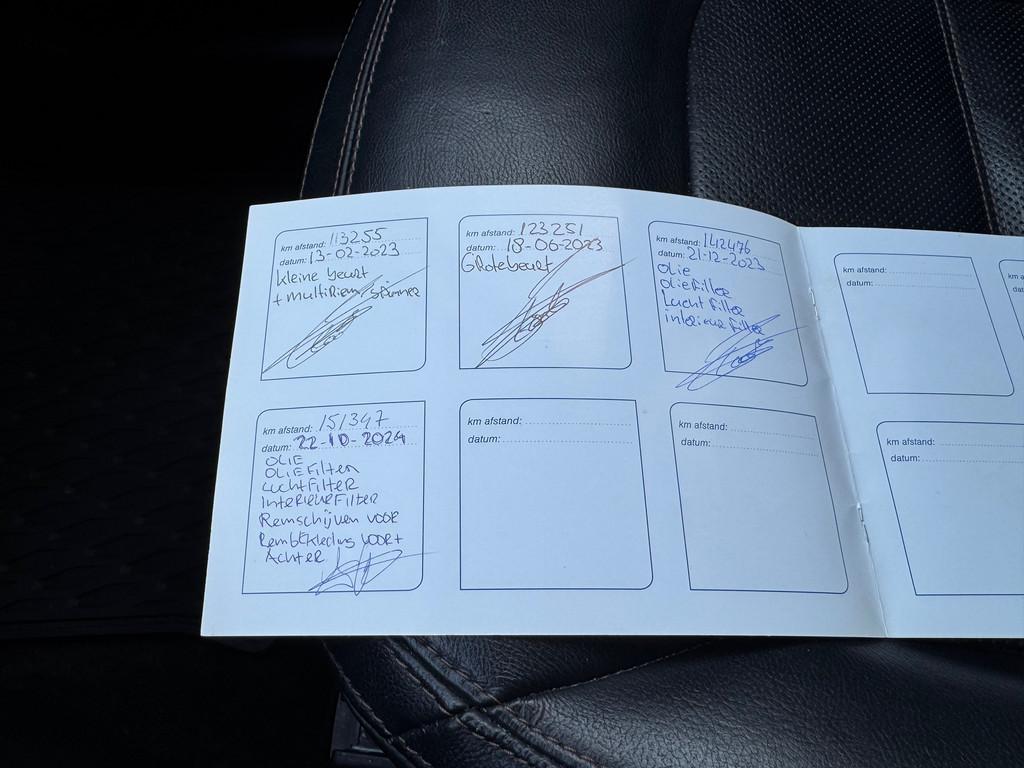 km afstand: 113255
datum: 13-02-2023
kleine beurt
+ multiriem spanner
km afstand: 123251
datum: 18-06-2023
Grote beurt
km afstand: 142476
datum: 21-12-2023
olie
oliefilter
Lucht filter
interieur filter
km afstand:
datum:
km af
datum
km afstand: 151347
datum: 22-10-2024
OLIE
OLIEFilter
LuchtFilter
InterieurFilter
Remschijven VOOR
Rembekleding VOOR +
Achter
km afstand:
datum:
km afstand:
datum:
km afstand:
datum: